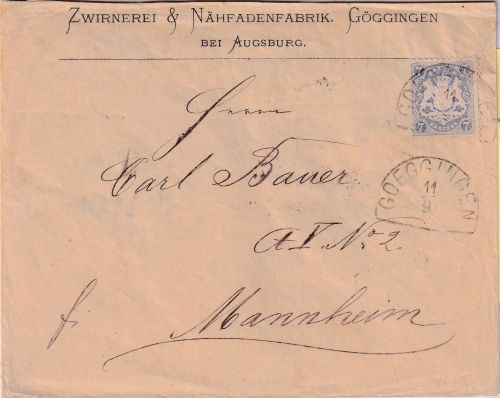 ZWIRNEREI & NÄHFADENFABRIK, GÖGGINGEN
BEI AUGSBURG.
7 7
Herrn
Carl Bauer
GOEGGINGEN
11
9
No 2.
Mannheim